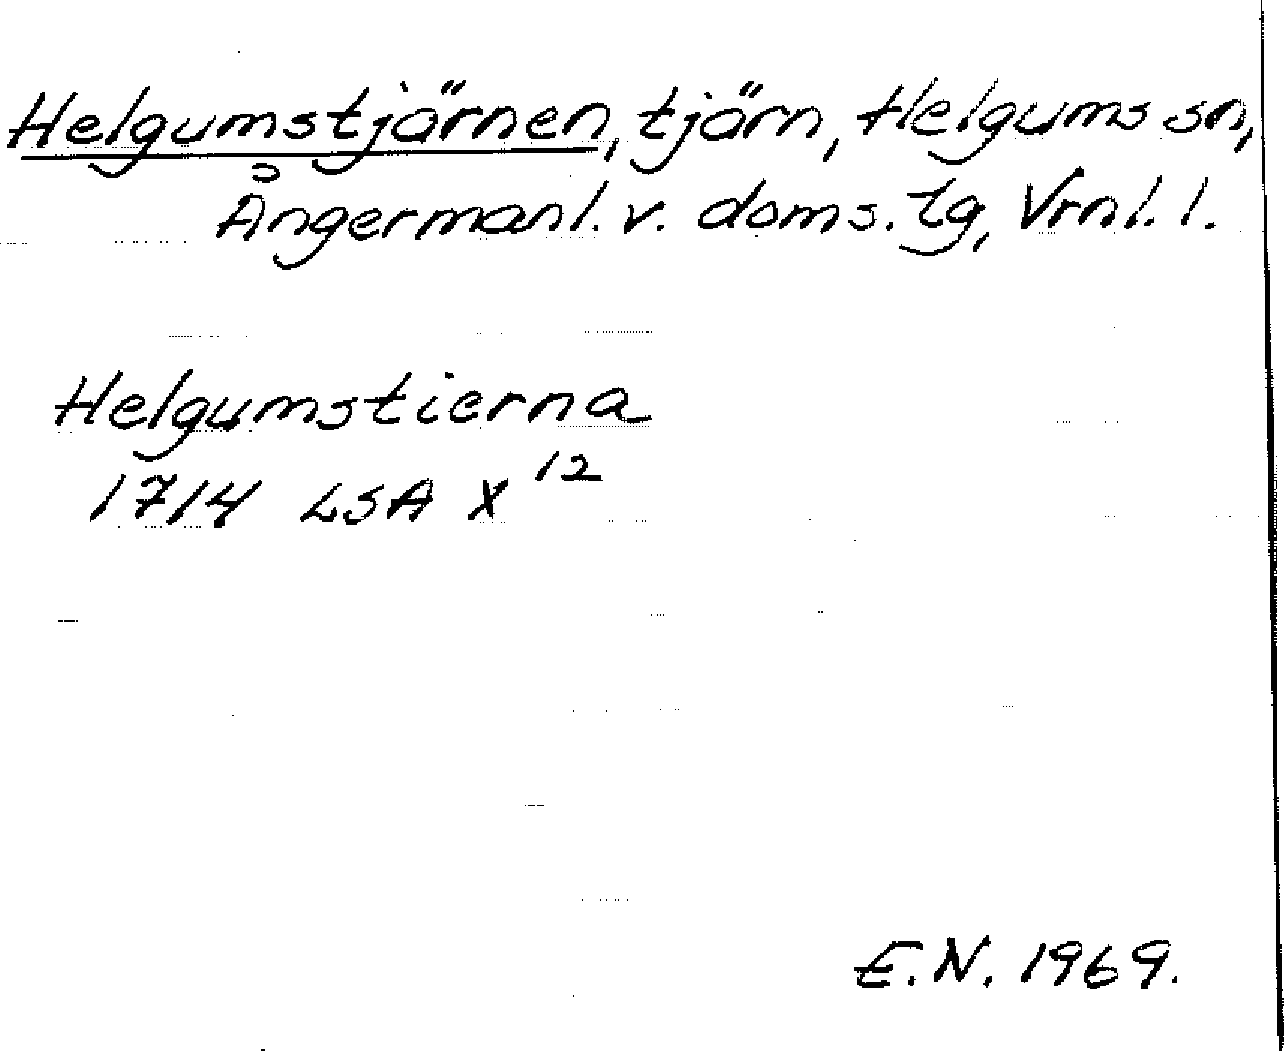 Helgumstjärnen, tjärn, Helgums sn,
Ångermanl. v. doms. tg, Vrnl. l.
Helgumstierna
1714 LSA X 12
E.N. 1969.